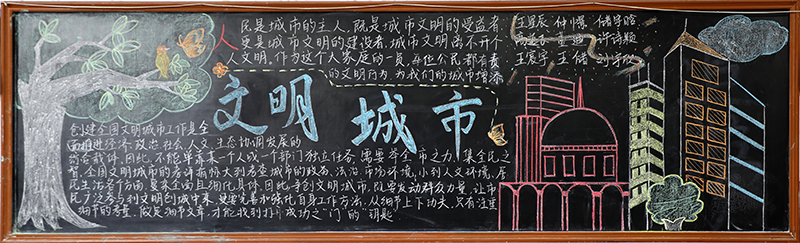 人民是城市的主人,既是城市文明的受益者,
更是城市文明的建设者,城市文明离不开个
人文明,作为这个大家庭的一员,每位公民都有责
的文明行为,为我们的城市增添
文明城市
创建全国文明城市工作是全
面推进经济、政治、社会、人文、生态协调发展的
综合载体,因此,不能单靠某一个人或一个部门独立任务,需要举全市之力,集全民之
智,全国文明城市的考评指标大到考查城市的政务、法治、市场环境,小到人文环境、居
民生活各个方面,复杂全面且细化具体,因此,争创文明城市,既要发动群众力量,让市
民广泛参与到文明创城中来,更要完善和强化自身工作方法,从细节上下功夫,只有注重
细节的考量,做足细节文章,才能找到打开成功之“门”的“钥匙”